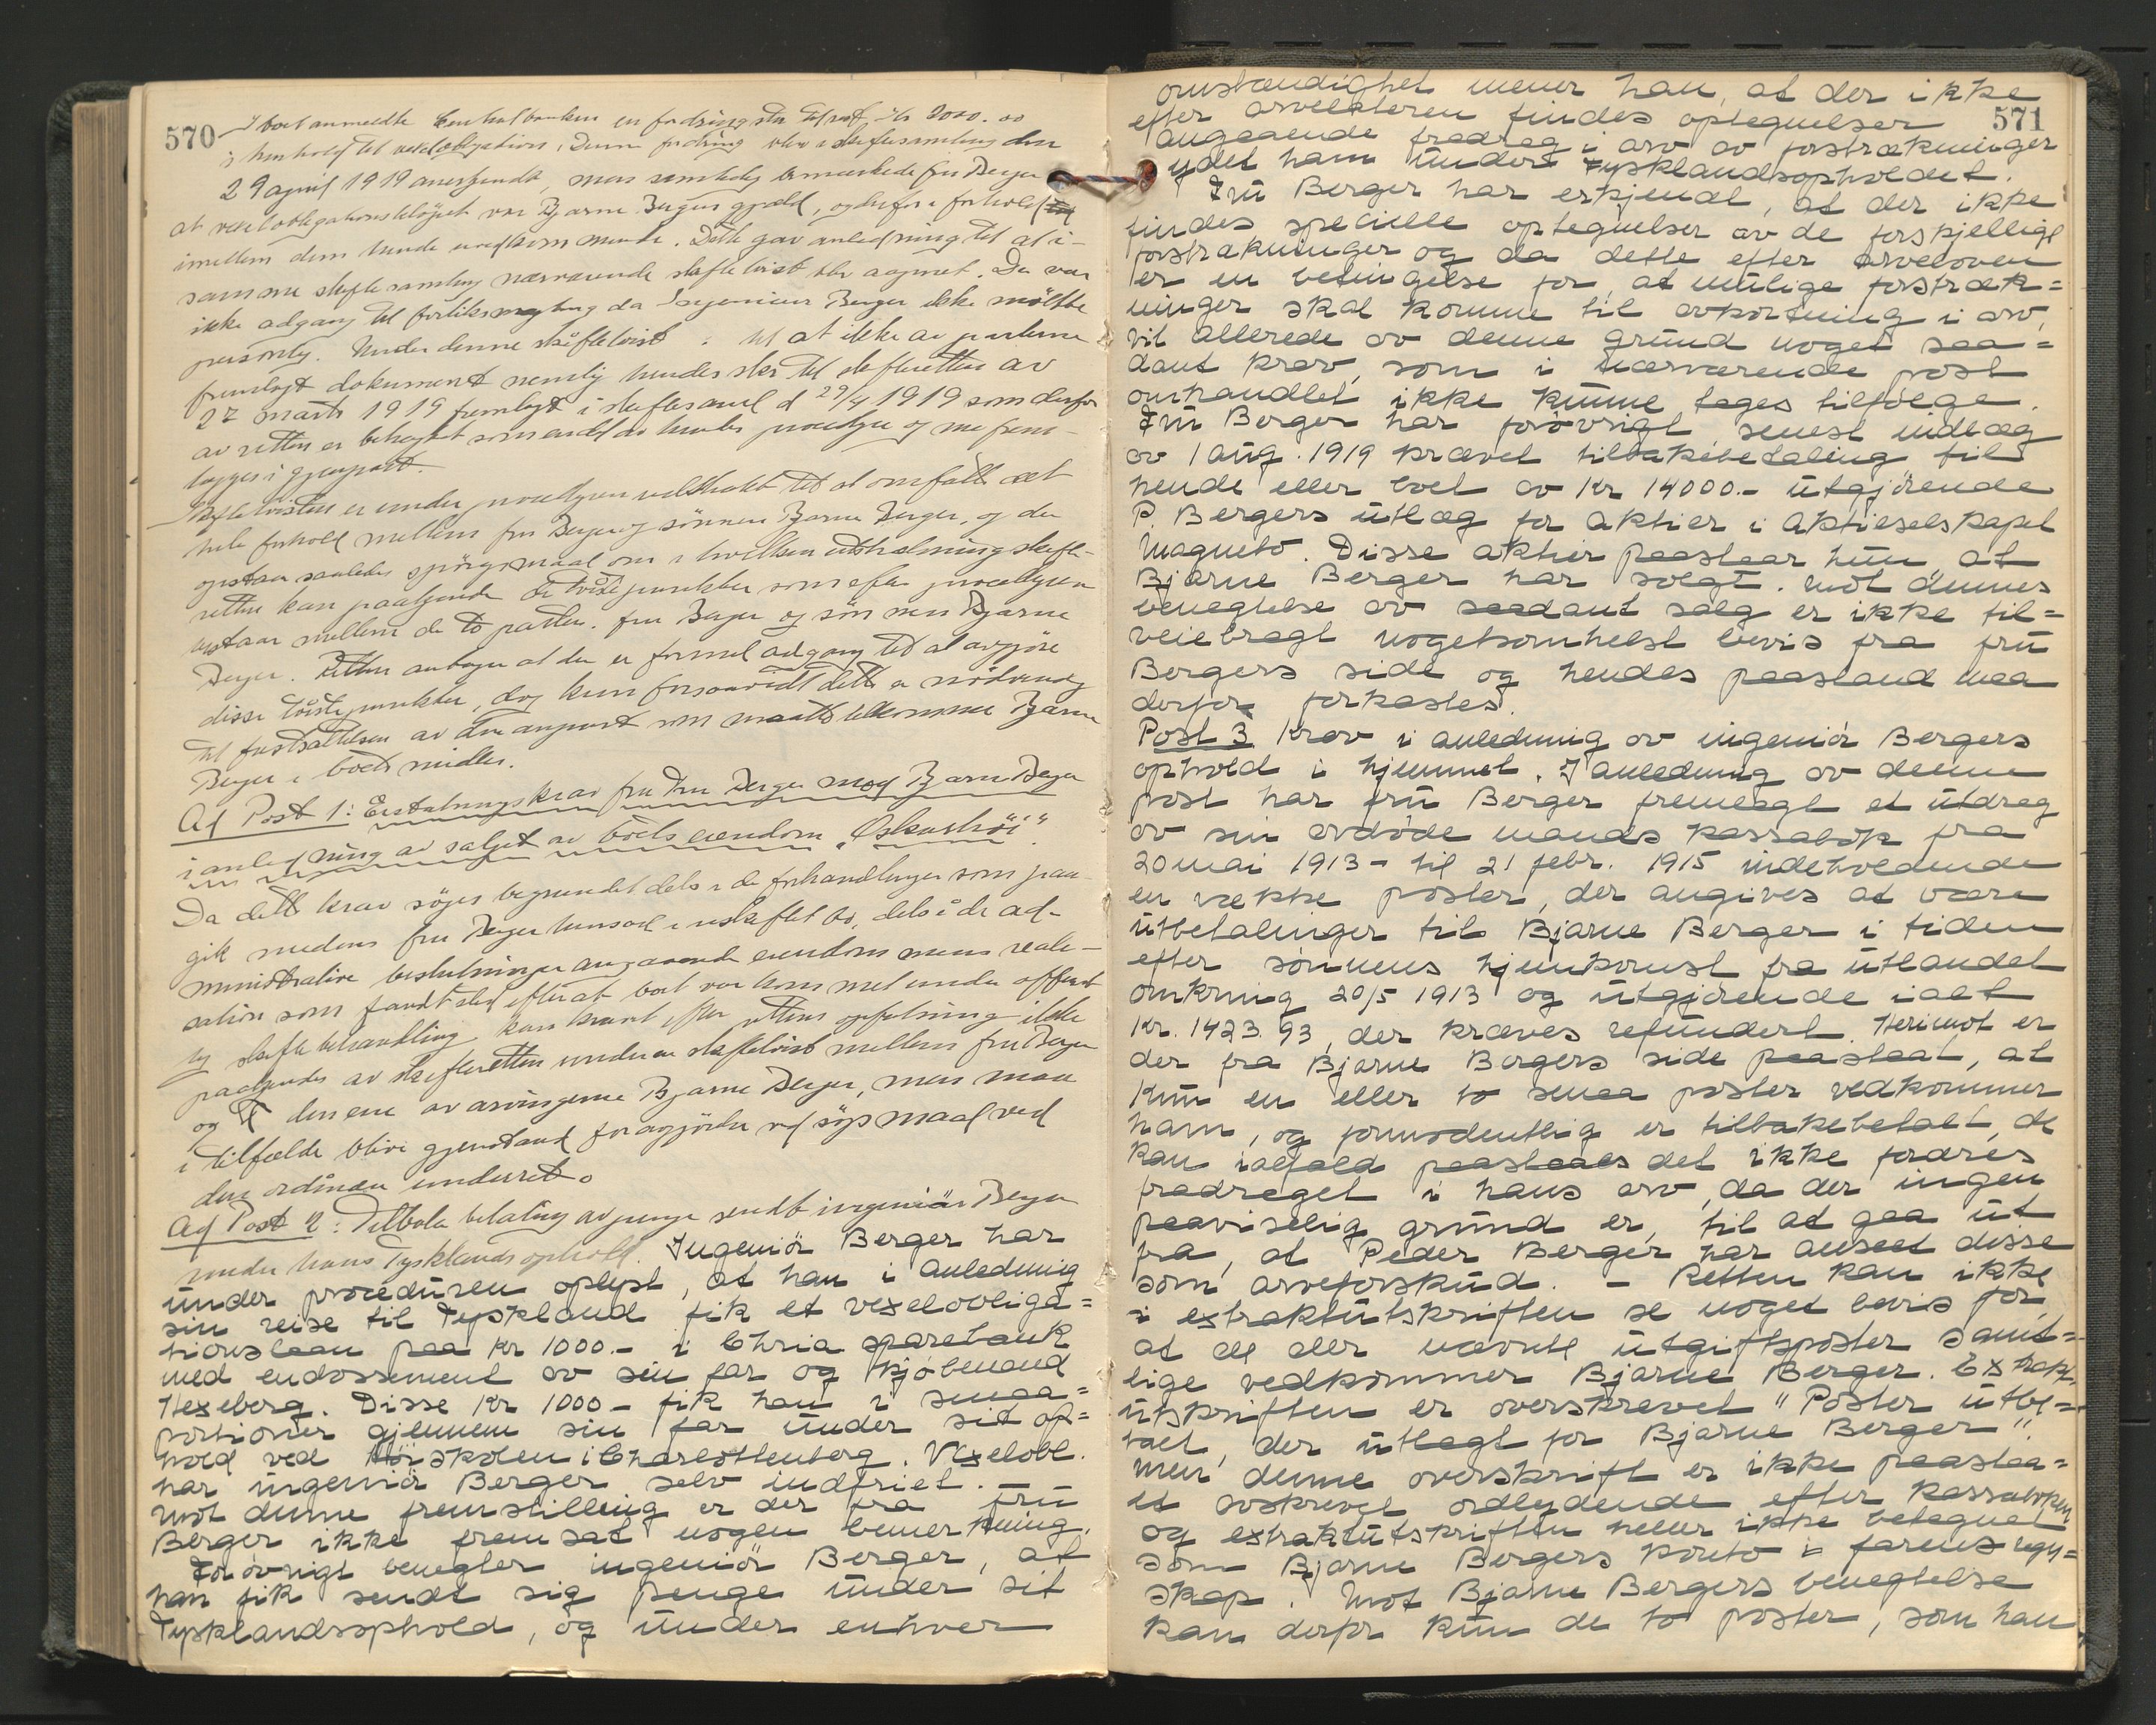 570
I boet anmeldte Centralbanken en fordring stor tilrest, Kr 3000.00
i henhold til vexelobligation. Denne fordring blev i skiftesamling den
29 april 1919 anerkjendt, men samtidig bemerkede fru Berger
at vexelobligationsbeløpet var Bjarne Bergers gjæld, og derfor i forhold
imellem dem hende uvedkommende. Dette gav anledning til at i
samme skiftesamling nærværende skiftetvist blev aapnet. Da var
ikke adgang til forliksmegling da Ingeniør Berger ikke møtte
personlig. Under denne skiftetvist : til at ikke av parterne
fremlagt dokument nemlig hendes skr til skifteretten av
27 marts 1919 fremlagt i skiftesaml d 29/4 1919 som derfor
av retten er betragtet som endel av hendes procedyre og maa frem-
lægges i gjenpart.
Skiftetvisten er under procedyren utstrakt til at omfatte det
hele forhold mellem fru Berger og sønnen Bjarne Berger, og der
opstaar saaledes spørgsmaal om i hvilken utstrækning skifte-
retten kan paakjende de tvistepunkter som efter procedyren
opstaar mellem de to parter. fru Berger og sønnen Bjarne
Berger. Retten antager at der er formel adgang til at avgjøre
disse tvistepunkter, dog kun forsaavidt dette er nødvendig
til fastsættelsen av den arvepart som maatte tilkomme Bjarne
Berger i boets midler.
Ad Post 1: Erstatningskrav fra Fru Berger mod Bjarne Berger
i anledning av salget av boets eiendom "Oskarshöi".
Da dette krav søges begrundet dels i de forhandlinger som paa-
gik medens fru Berger hensad i uskiftet bo, dels i de ad-
ministrative beslutninger angaaende eiendommens reali-
sation som fandt sted efterat boet var kommet under offent-
lig skiftebehandling, kan kravet efter rettens opfatning ikke
paakjendes av skifteretten under en skiftetvist mellem fru Berger
og den ene av arvingerne Bjarne Berger, men maa
i tilfælde blive gjenstand for avgjørelse ved søgsmaal ved
den ordinære underret.
Ad Post 2: Tilbakebetaling av penge sendt ingeniør Berger
under hans Tysklandsophold. Ingeniör Berger har
under proceduren oplyst, at han i anledning
sin reise til Tyskland fik et vexelobliga=
tionslaan paa Kr 1000.- i Chria sparebank
med endossement av sin far og kjöbmand
Hexeberg. Disse Kr 1000 - fik han i smaa=
portioner gjennem sin far under sit op=
hold ved Höiskolen i Charlottenberg. Vexelobl.
har ingeniör Berger selv indfriet. —
Mot denne fremstilling er der fra fru
Berger ikke fremsat nogen bemerkning.
Forövrigt benegter ingeniör Berger, at
han fik sendt sig penge under sit
Tysklandsophold, og under enhver
571
omstændighet mener han, at der ikke
efter arveladeren findes optegnelser
angaaende fradrag i arv av forstrækninger
ydet ham under Tysklandsopholdet.
Fru Berger har erkjendt, at der ikke
findes specielle optegnelser av de forskjellige
forstrækninger og da dette efter arveloven
er en betingelse for, at mulige forstræk=
ninger skal komme til avkortning i arv,
vil allerede av denne grund noget saa=
dant krav, som i nærværende post
omhandlet ikke kunne tages tilfölge.
Fru Berger har forövrigt senest indlæg
av 1 aug. 1919 krævet tilbakebetaling til
hende eller boet av Kr 14000.- utgjörende
P. Bergers utlæg for aktier i Aktieselskapet
Magneto. Disse aktier paastaar hun, at
Bjarne Berger har solgt. Mot dennes
benegtelse av saadant salg er ikke til=
veiebragt nogetsomhelst bevis fra fru
Bergers side og hendes paastand maa
derfor forkastes.
Post 3 Krav i anledning av ingeniör Bergers
ophold i hjemmet. I anledning av denne
post har fru Berger fremlagt et utdrag
av sin avdöde mands kassabok fra
20 mai 1913 - til 21 febr. 1915 indeholdende
en række poster, der angives at være
utbetalinger til Bjarne Berger i tiden
efter sönnens hjemkomst fra utlandet
omkring 20/5 1913 og utgjörende ialt
Kr. 1423.93, der kræves refundert. Herimot er
der fra Bjarne Bergers side paastaat, at
kun en eller to smaa poster vedkommer
ham, og formodentlig er tilbakebetalt, de
kan ialfald paastaaes det ikke fordres
fradraget i hans arv, da der ingen
paaviselig grund er, til at gaa ut
fra, at Peder Berger har anseet disse
som arveforskud. - Retten kan ikke
i extraktutskriften se noget bevis for,
at de der nævnte utgiftsposter samt=
lige vedkommer Bjarne Berger. Extrakt
utskriften er overskrevet "Poster utbe=
talt, der utlagt for Bjarne Berger",
men denne overskrift er ikke paastaa=
et avskrevet ordlydende efter kassaboken
og extraktutskriften heller ikke betegnet
som Bjarne Bergers konto i farens regn=
skap. Mot Bjarne Bergers benegtelse
kan derfor kun de to poster, som han